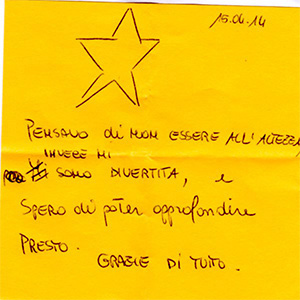 15.04.14
PENSAVO di NON ESSERE ALL'ALTEZZA
INVECE MI
SONO DIVERTITA, e
SPERO di poter approfondire
PRESTO.
GRAZIE DI TUTTO.